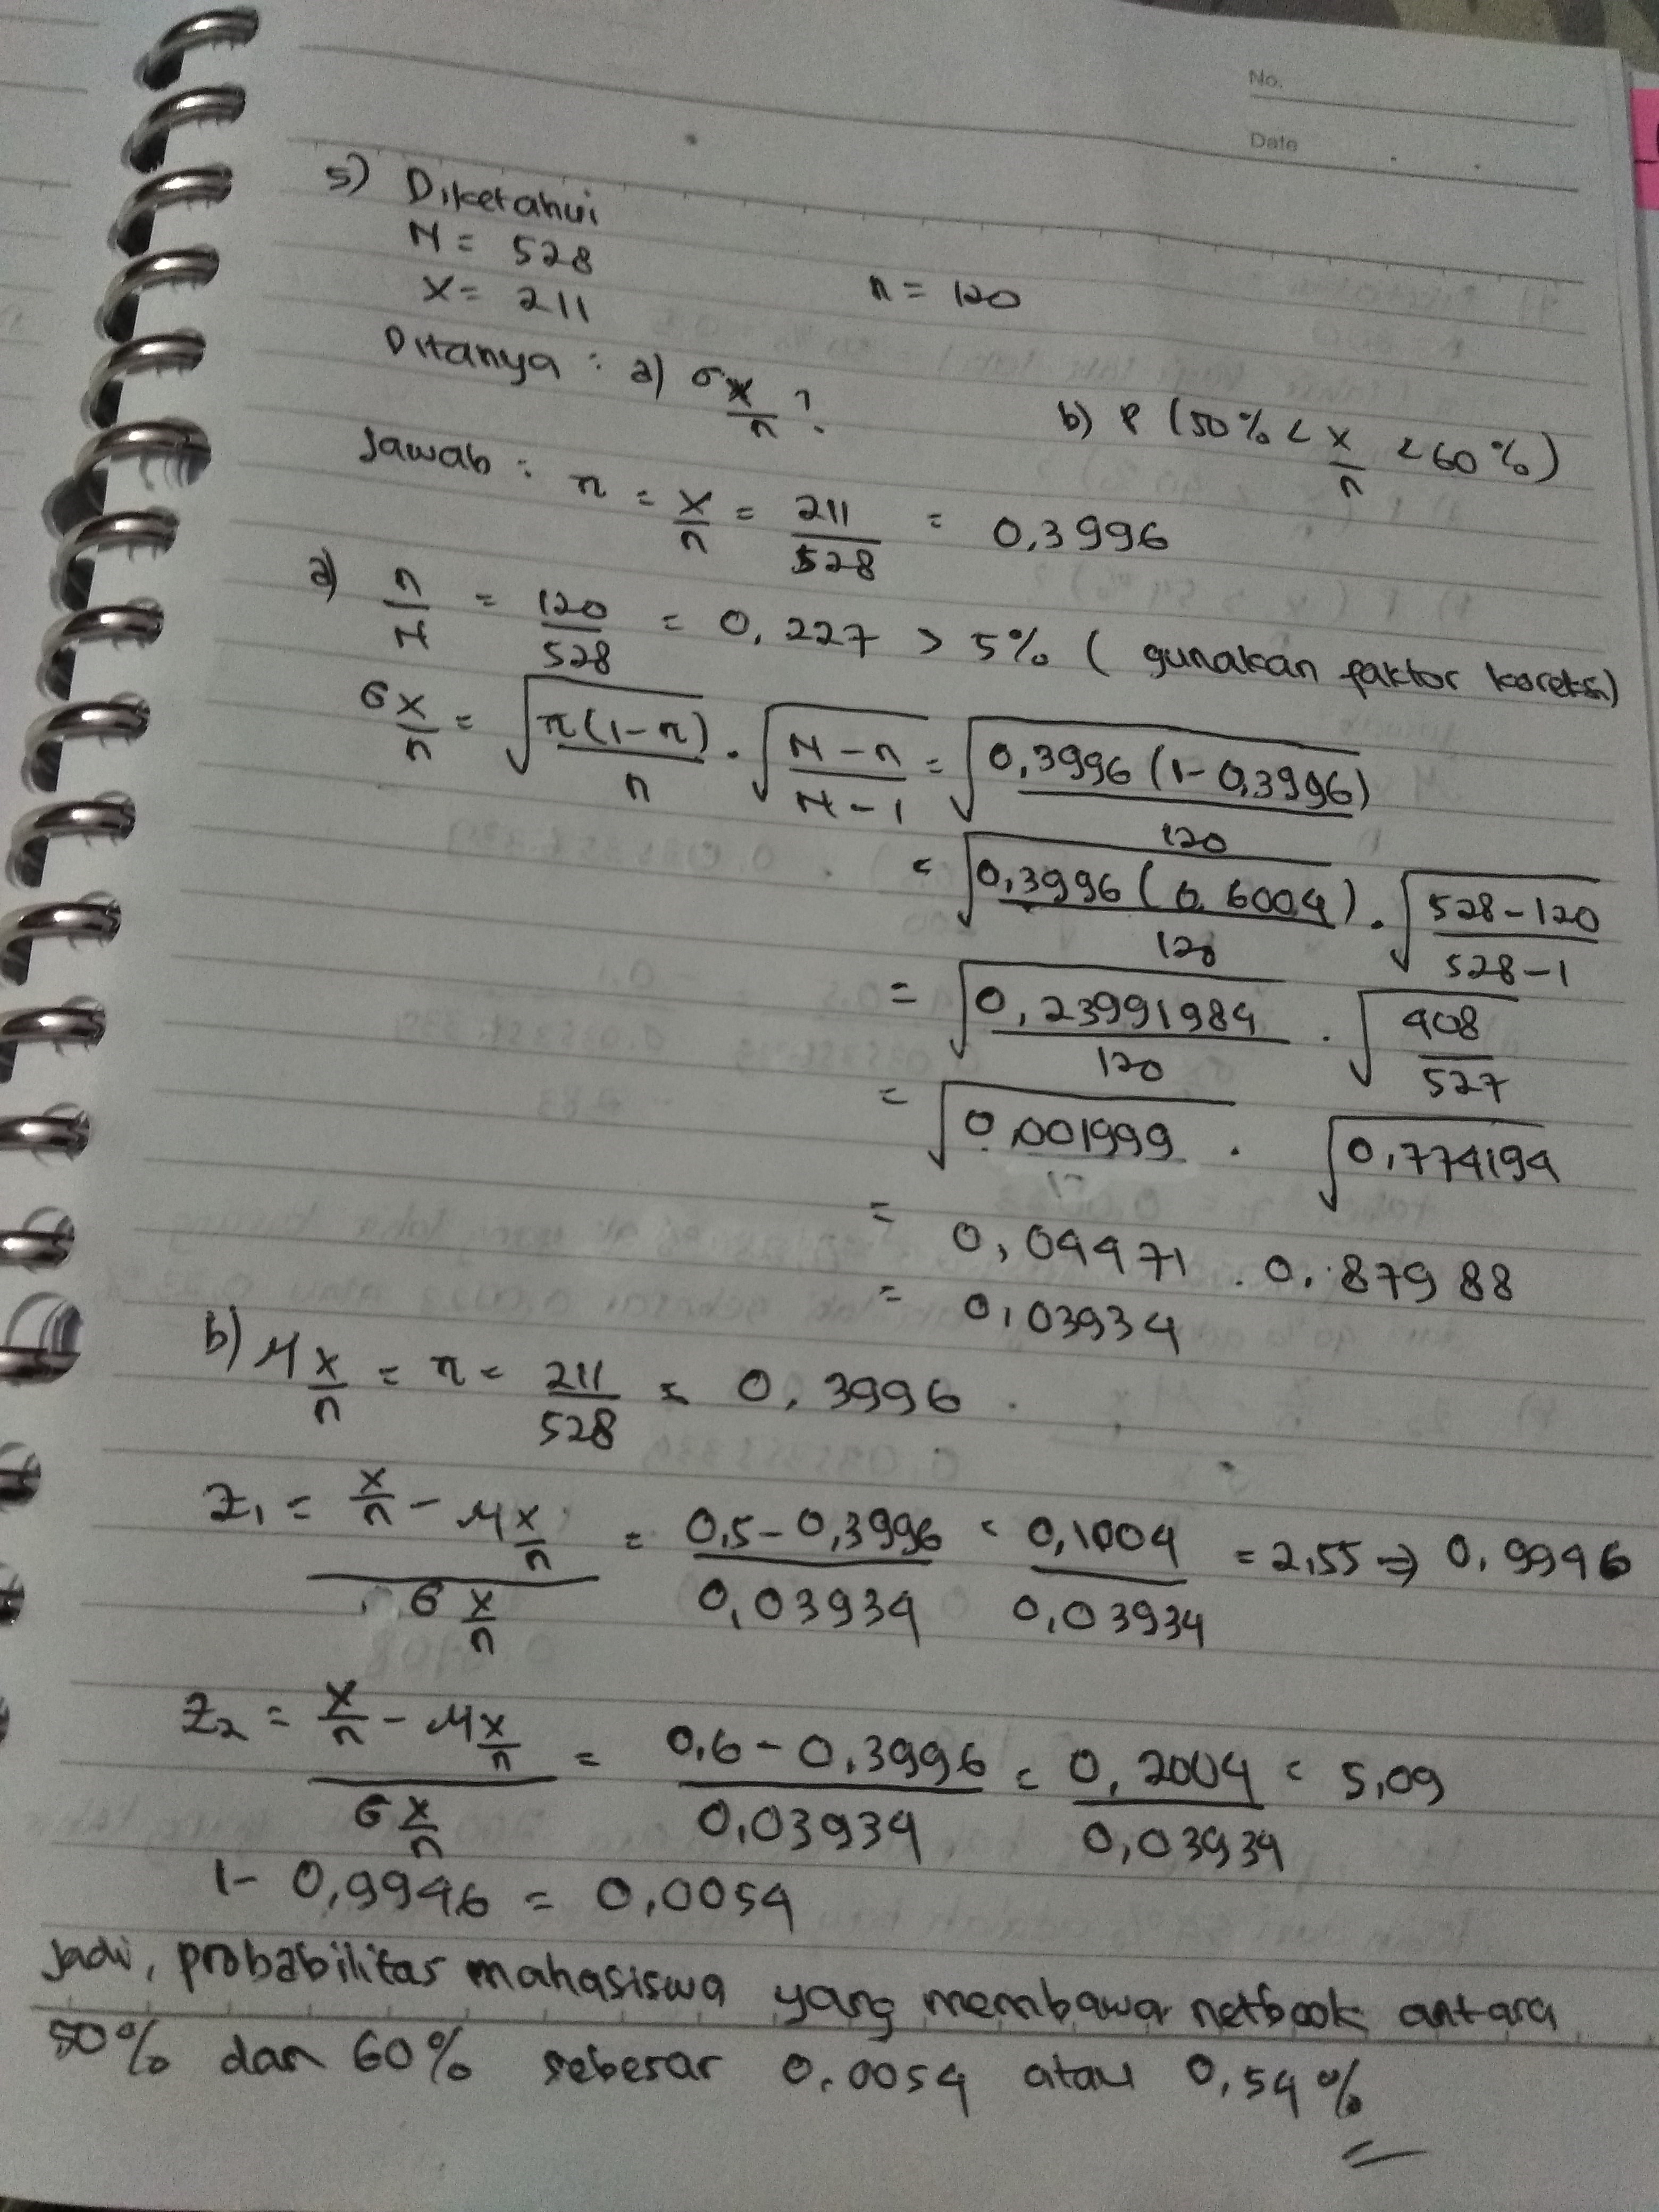 No.
Date
5) Diketahui
N = 528
X = 211 n = 120
Ditanya : a) σ x/n ? b) P (50% < x/n < 60%)
Jawab : π = x/n = 211/528 = 0,3996
a) n/N = 120/528 = 0,227 > 5% ( gunakan faktor koreksi)
σ x/n = √(π(1-π)/n) . √((N-n)/(N-1)) = √(0,3996 (1-0,3996)/120)
= √(0,3996 (0,6004)/120) . √((528-120)/(528-1))
= √(0,23991984/120) . √(408/527)
= √0,001999 . √0,774194
= 0,04471 . 0,87988
= 0,03934
b) μ x/n = π = 211/528 = 0,3996
Z₁ = (x/n - μ x/n)/(σ x/n) = (0,5-0,3996)/0,03934 = 0,1004/0,03934 = 2,55 ⇒ 0,9946
Z₂ = (x/n - μ x/n)/(σ x/n) = (0,6-0,3996)/0,03934 = 0,2004/0,03934 = 5,09
1- 0,9946 = 0,0054
Jadi, probabilitas mahasiswa yang membawa netbook antara
50% dan 60% sebesar 0,0054 atau 0,54%